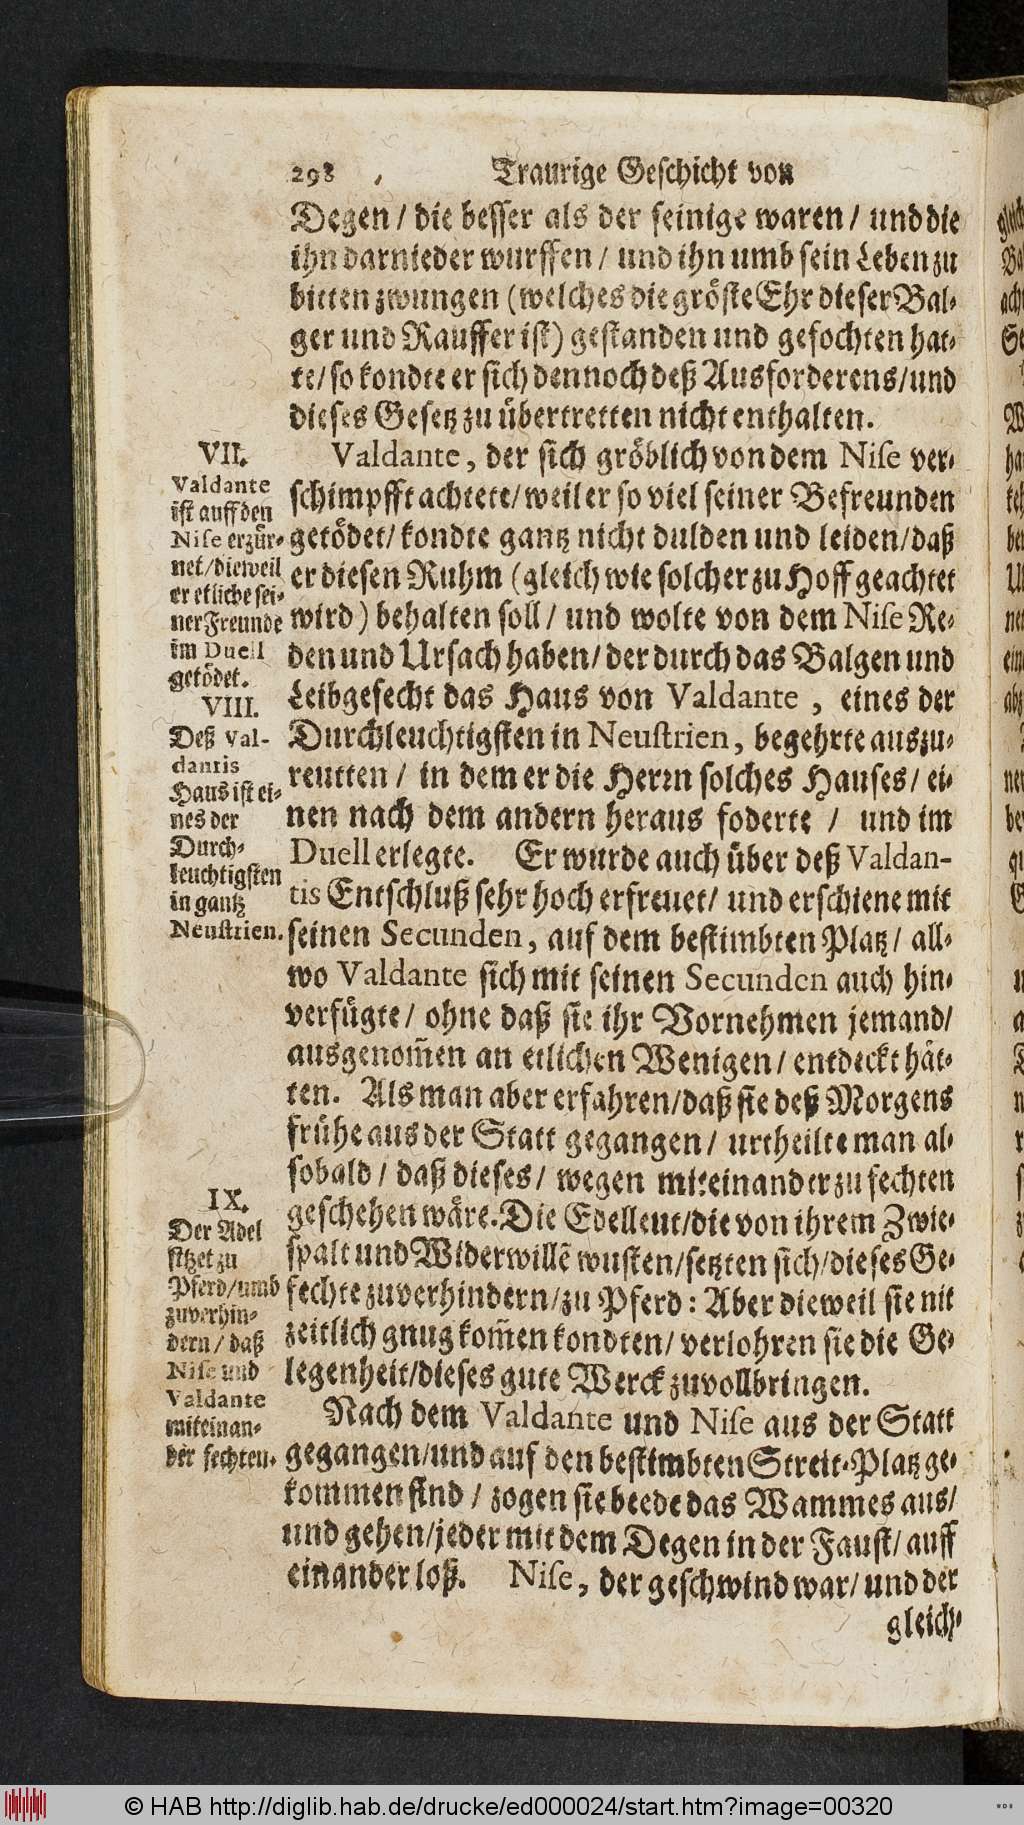 298 Traurige Geschicht von
Degen / die besser als der seinige waren / und die
ihn darnieder wurffen / und ihn umb sein Leben zu
bitten zwungen (welches die gröste Ehr dieser Bal-
ger und Rauffer ist) gestanden und gefochten hat-
te / so kondte er sich dennoch deß Ausforderens / und
dieses Gesetz zu übertretten nicht enthalten.
Valdante, der sich gröblich von dem Nise ver-
schimpfft achtete / weil er so viel seiner Befreunden
getödet / kondte gantz nicht dulden und leiden / daß
er diesen Ruhm (gleich wie solcher zu Hoff geachtet
wird) behalten soll / und wolte von dem Nise Re-
den und Ursach haben / der durch das Balgen und
Leibgefecht das Haus von Valdante, eines der
Durchleuchtigsten in Neustrien, begehrte auszu-
reutten / in dem er die Herrn solches Hauses / ei-
nen nach dem andern heraus foderte / und im
Duell erlegte. Er wurde auch über deß Valdan-
tis Entschluß sehr hoch erfreuet / und erschiene mit
seinen Secunden, auf dem bestimbten Platz / all-
wo Valdante sich mit seinen Secunden auch hin-
verfügte / ohne daß sie ihr Vornehmen jemand /
ausgenom̃en an etlichen Wenigen / entdeckt hät-
ten. Als man aber erfahren / daß sie deß Morgens
frühe aus der Statt gegangen / urtheilte man al-
sobald / daß dieses / wegen miteinander zu fechten
geschehen wäre. Die Edelleut / die von ihrem Zwie-
spalt und Widerwillẽ wusten / setzten sich / dieses Ge-
fechte zuverhindern / zu Pferd : Aber dieweil sie nit
zeitlich gnug kom̃en kondten / verlohren sie die Ge-
legenheit / dieses gute Werck zuvollbringen.
Nach dem Valdante und Nise aus der Statt
gegangen / und auf den bestimbten Streit-Platz ge-
kommen sind / zogen sie beede das Wammes aus /
und gehen / jeder mit dem Degen in der Faust / auff
einander loß. Nise, der geschwind war / und der
gleich-
VII.
Valdante
ist auff den
Nise erzür-
net / dieweil
er etliche sei-
ner Freunde
im Duell
getödet.
VIII.
Deß Val-
dantis
Haus ist ei-
nes der
Durch-
leuchtigsten
in gantz
Neustrien.
IX.
Der Adel
sitzet zu
Pferd / umb
zuverhin-
dern / daß
Nise und
Valdante
miteinan-
der fechten.
© HAB http://diglib.hab.de/drucke/ed000024/start.htm?image=00320